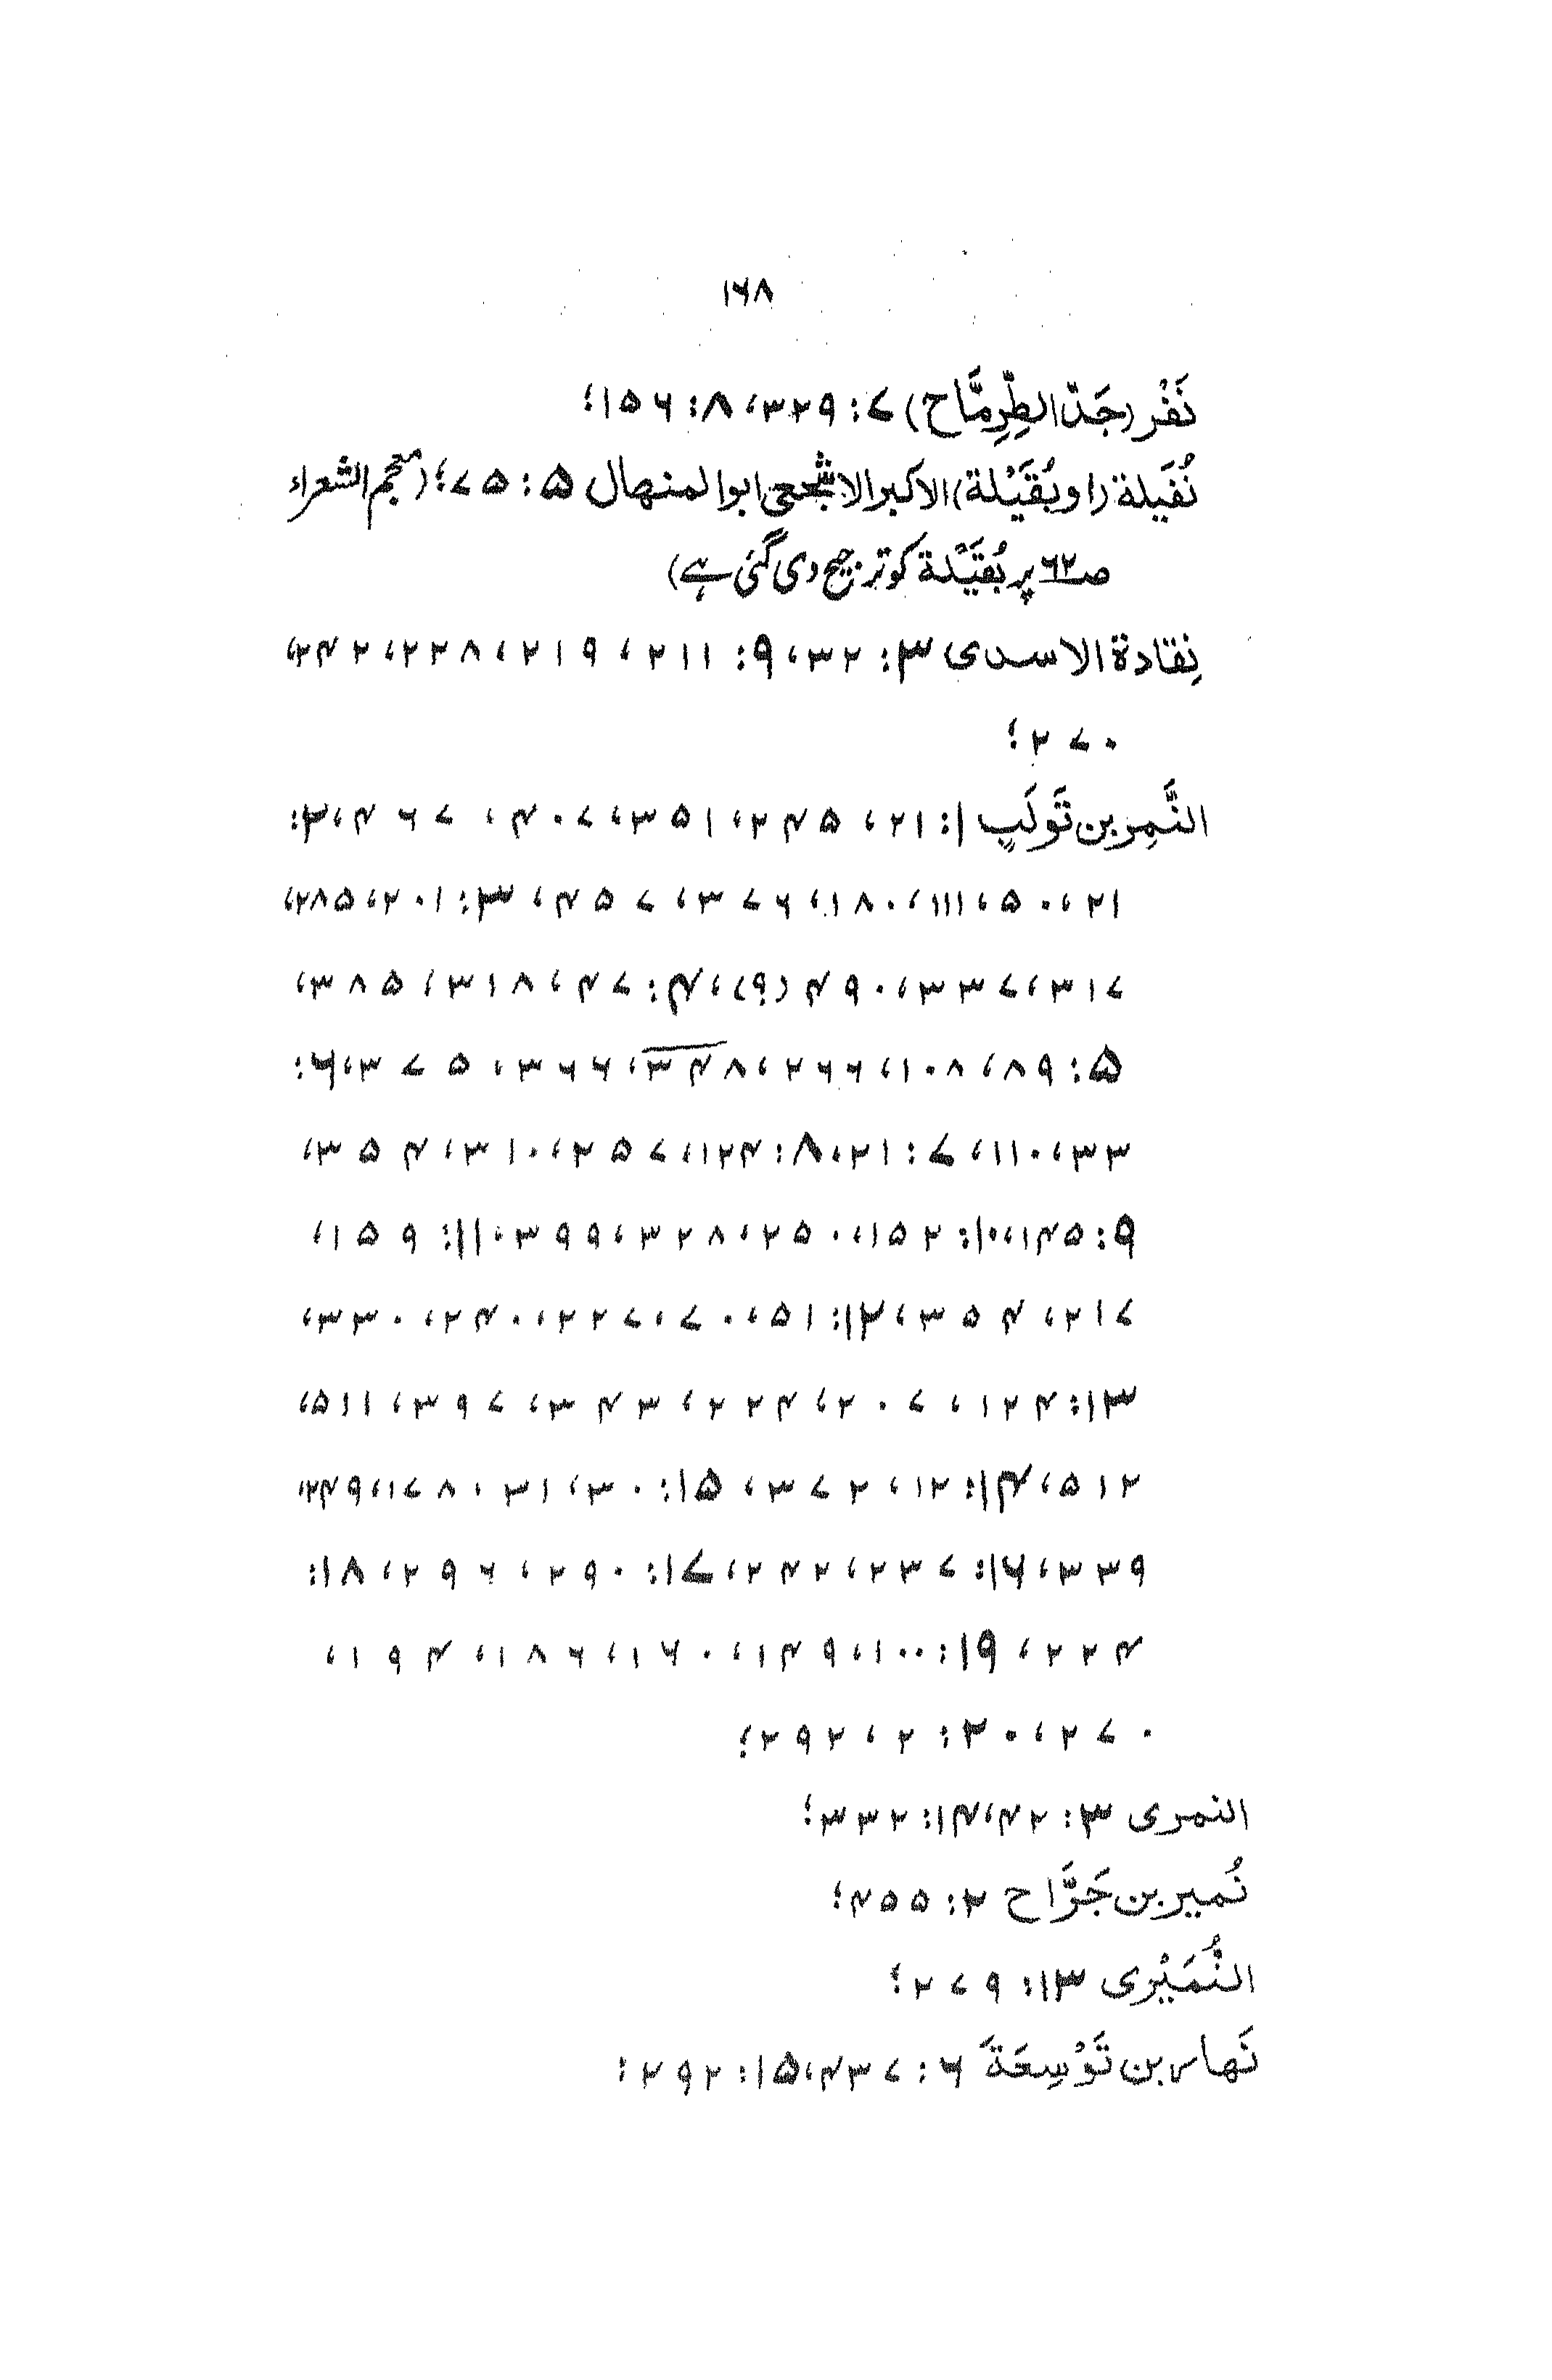 ۱۶۸
نَفْر (جَدّ الطِّرِمَّاح) ۷: ۳۲۹، ۸: ۱۵۶؛
نُفَیلة (او بُقَیْلة) الاکبر الاشجعی ابوالمنهال ۵: ۷۵؛ (معجم الشعراء
صـ۶۲ پر بُقَیْلة کو ترجیح دی گئی ہے)
نِقادة الاسدی ۳: ۳۲، ۹: ۲۱۱، ۲۱۹، ۲۲۸، ۲۴۲،
۲۷۰؛
النَّمِر بن تَولَب ۱: ۲۱، ۲۴۵، ۳۵۱، ۴۰۷، ۴۶۷، ۲:
۲۱، ۵۰، ۱۱۱، ۱۸۰، ۳۷۶، ۴۵۷، ۳: ۲۰۱، ۲۸۵،
۳۱۷، ۳۳۷، ۴۹۰ (؟)، ۴: ۴۷، ۳۱۸، ۳۸۵،
۵: ۸۹، ۱۰۸، ۲۶۶، ۳۴۸، ۳۶۶، ۳۷۵، ۶:
۳۳، ۱۱۰، ۷: ۲۱، ۸: ۱۲۴، ۲۵۷، ۳۱۰، ۳۵۴،
۹: ۱۴۵، ۱۰: ۱۵۲، ۲۵۰، ۳۲۸، ۳۹۹، ۱۱: ۱۵۹،
۲۱۷، ۳۵۴، ۱۲: ۵۱، ۷۰، ۲۲۷، ۲۴۰، ۳۳۰،
۱۳: ۱۲۴، ۲۰۷، ۲۲۴، ۳۴۳، ۳۹۷، ۵۱۱،
۵۱۲، ۱۴: ۱۲، ۳۷۲، ۱۵: ۳۰، ۳۱، ۱۷۸، ۲۴۹،
۳۳۹، ۱۶: ۲۳۷، ۲۴۲، ۱۷: ۲۹۰، ۲۹۶، ۱۸:
۲۲۴، ۱۹: ۱۰۰، ۱۴۹، ۱۶۰، ۱۸۶، ۱۹۴،
۲۷۰، ۲۰: ۲، ۲۹۲؛
النمری ۳: ۴۲، ۱۴: ۳۳۲؛
نُمیر بن جَرَّاح ۲: ۴۵۵؛
النُّمَیْری ۱۳: ۲۷۹؛
نَهار بن تَوْسِعَة ۶: ۴۳۷، ۱۵: ۲۹۲: